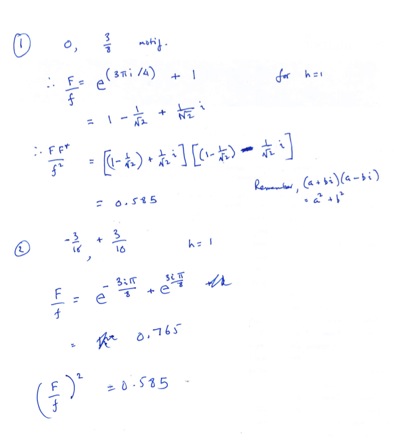 ① 0, 3/8 motif.
∴ F/f = e^(3πi/4) + 1 for h=1
= 1 - 1/√2 + 1/√2 i
∴ FF*/f² = [(1-1/√2) + 1/√2 i] [(1-1/√2) - 1/√2 i]
= 0.585
Remember, (a+bi)(a-bi)
= a² + b²
② -3/16, +3/16 h=1
F/f = e^(-3iπ/8) + e^(3iπ/8)
= 0.765
(F/f)² = 0.585.